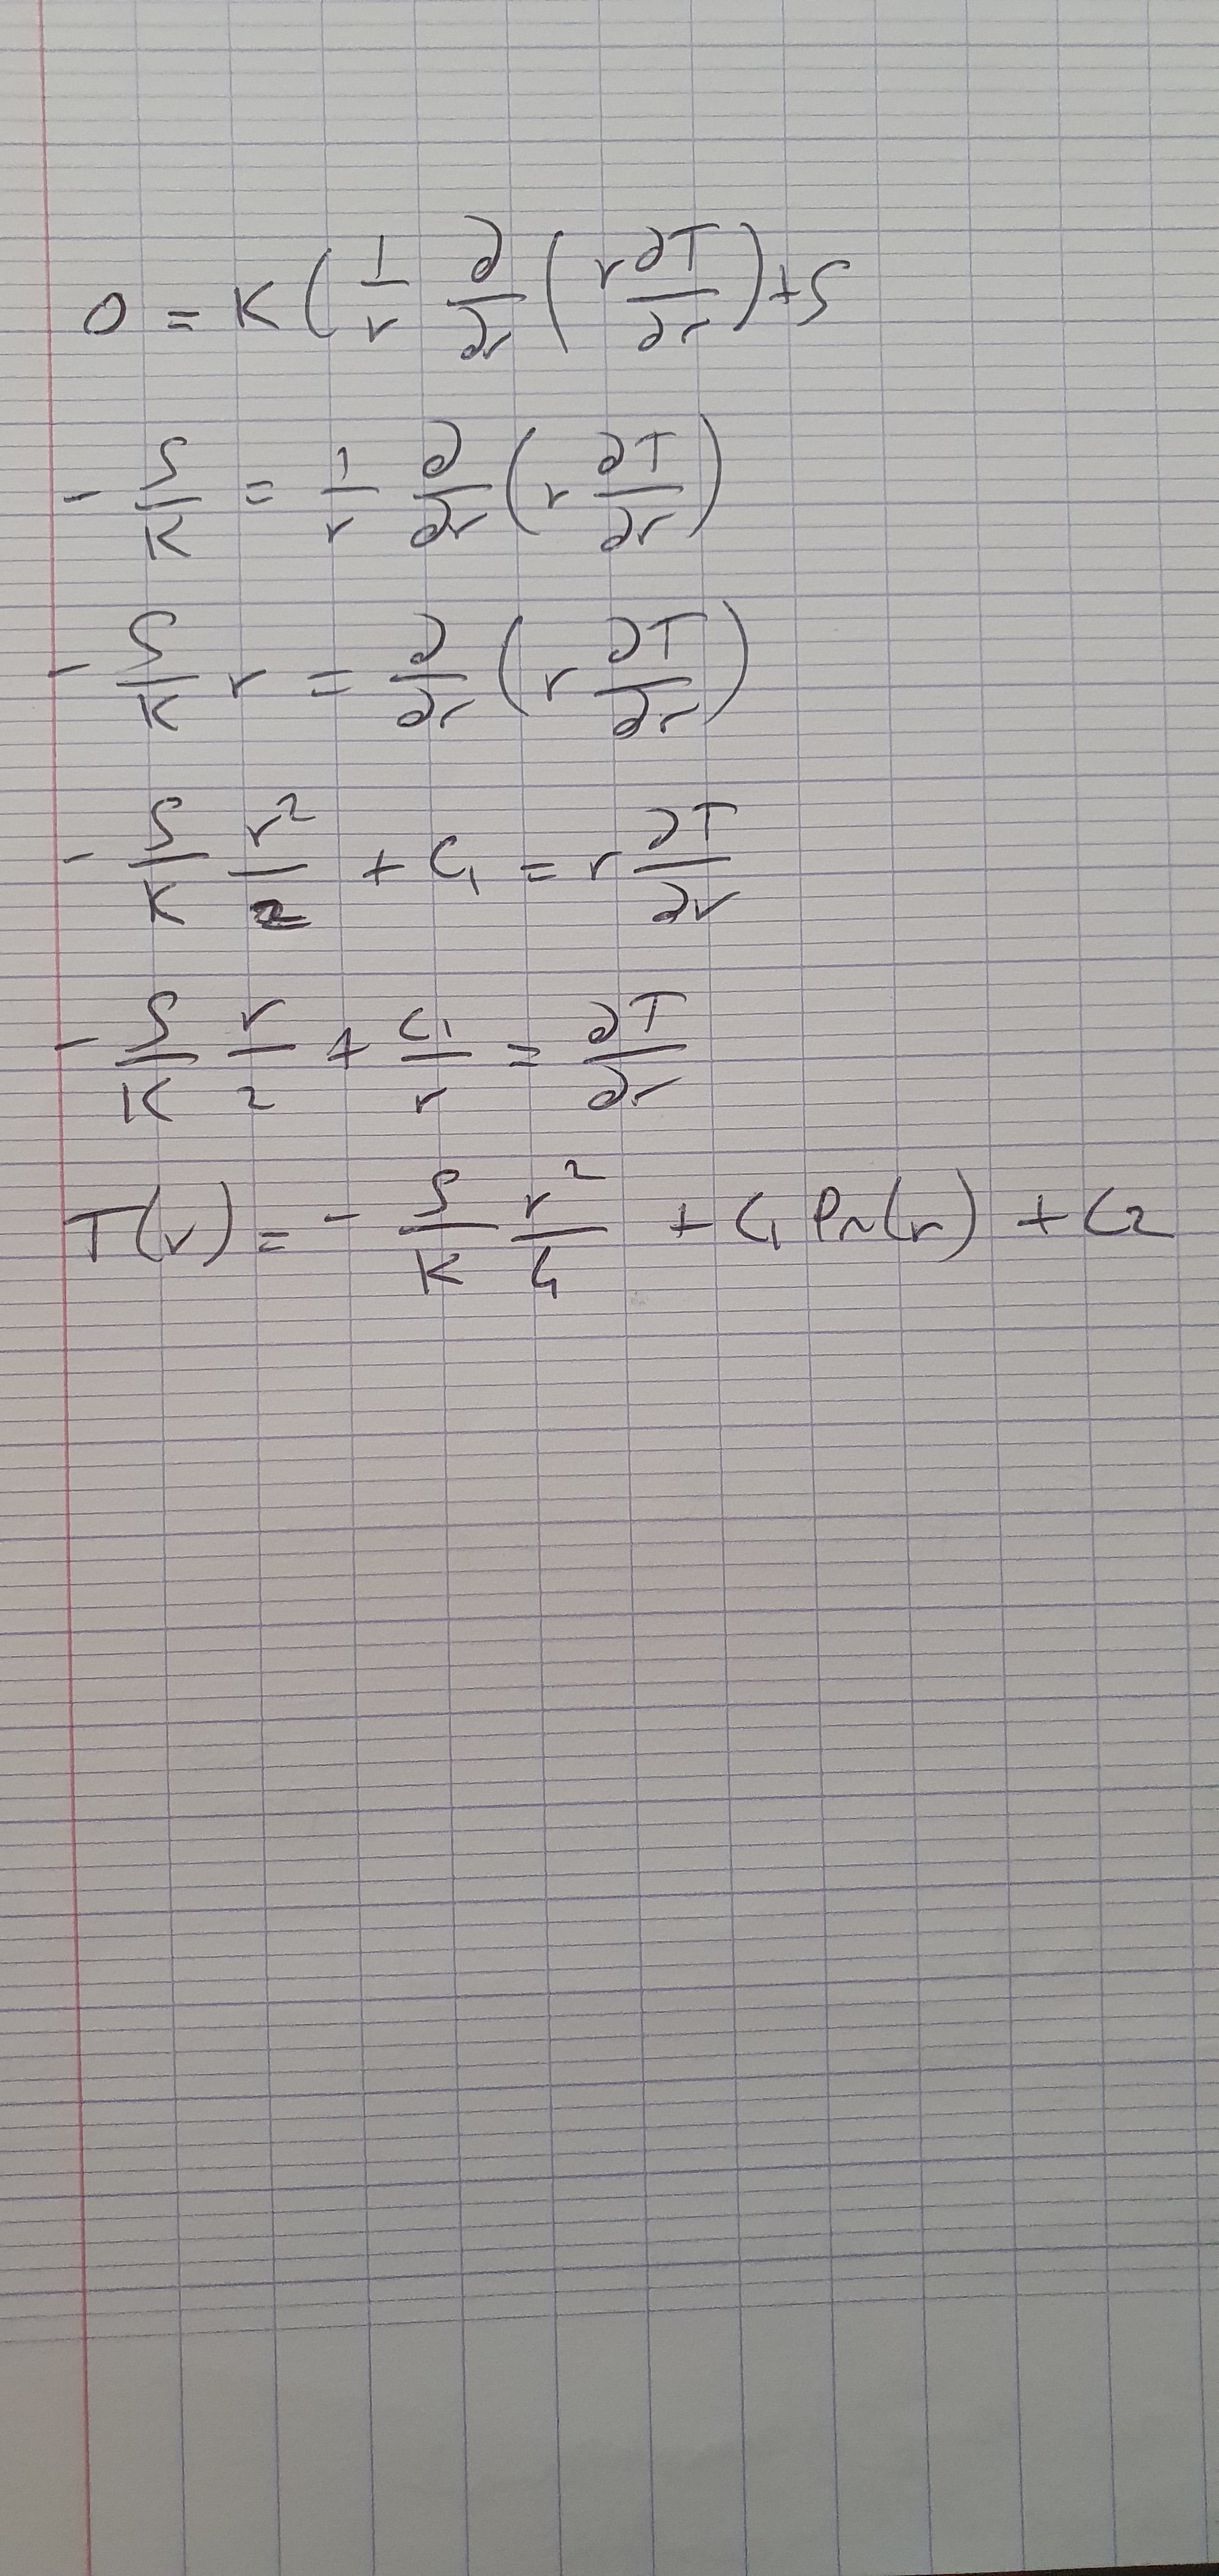 0 = K ( 1/r ∂/∂r ( r ∂T/∂r ) + S
- S/K = 1/r ∂/∂r ( r ∂T/∂r )
- S/K r = ∂/∂r ( r ∂T/∂r )
- S/K r²/2 + C₁ = r ∂T/∂r
- S/K r/2 + C₁/r = ∂T/∂r
T(r) = - S/K r²/4 + C₁ ln(r) + C₂